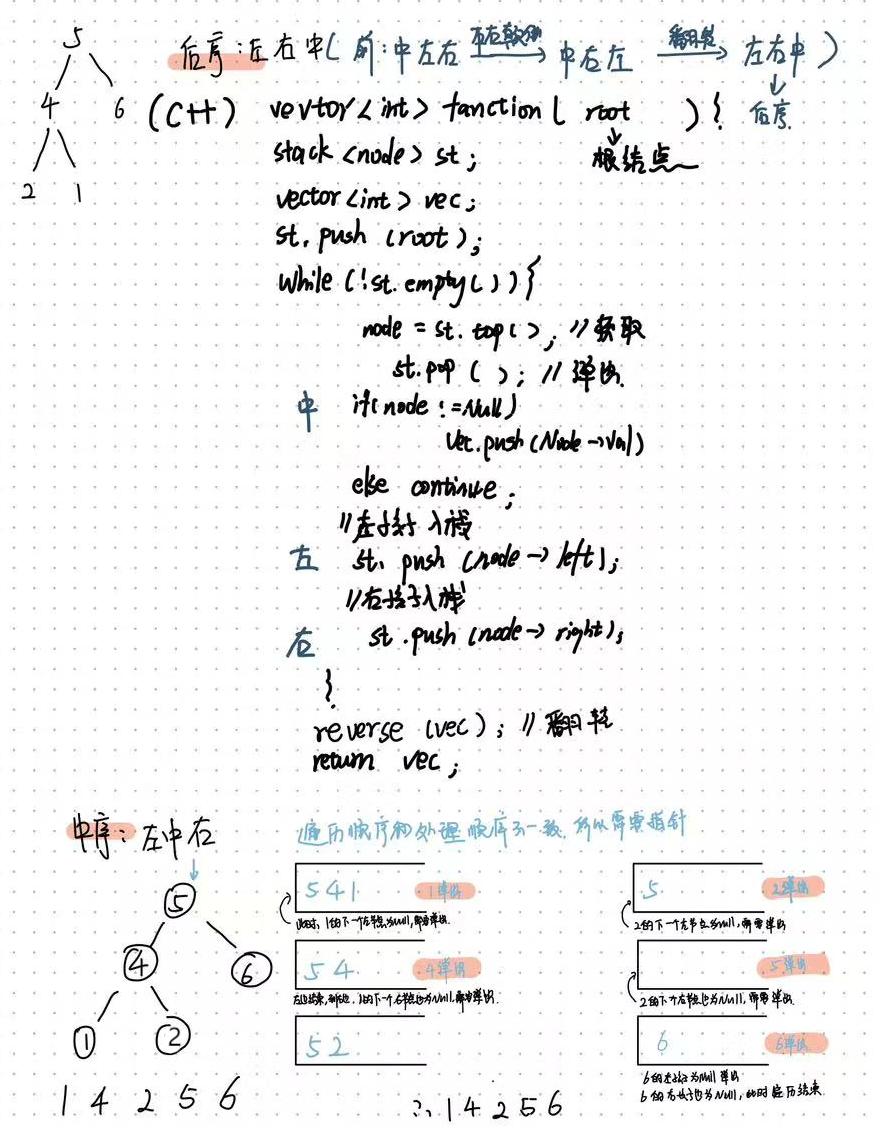 5
后序：左右中（前：中左右 左右颠倒 中右左 翻转 左右中）
4 6 (C++) vevtor<int> fanction( root ){ 后序
stack <node> st; 根结点
2 1 vector<int> vec;
st. push (root);
while (!st. empty( )){
node = st. top( ); //获取
st.pop ( ); // 弹出.
中 if(node !=Null)
Vec.push(Node→Val)
else continue;
//左孩子入栈
左 st. push (node→left);
//右孩子入栈
右 st .push (node→ right);
}
reverse (vec); // 翻转
return vec;
中序：左中右 遍历顺序和处理顺序不一致，所以需要指针
5 5 4 1 1弹出 5 2弹出
此时，1的下一个左节点为null，即需弹出. 2的下一个左节点为null，即需弹出
4 6 5 4 4弹出 5弹出
1的下一个右节点也为Null，即需弹出. 2的下一个右节点也为Null，即需弹出.
1 2 5 2 6 6弹出
6的左孩子为Null 弹出
6的右孩子也为Null，此时遍历结束.
1 4 2 5 6 ∴ 1 4 2 5 6